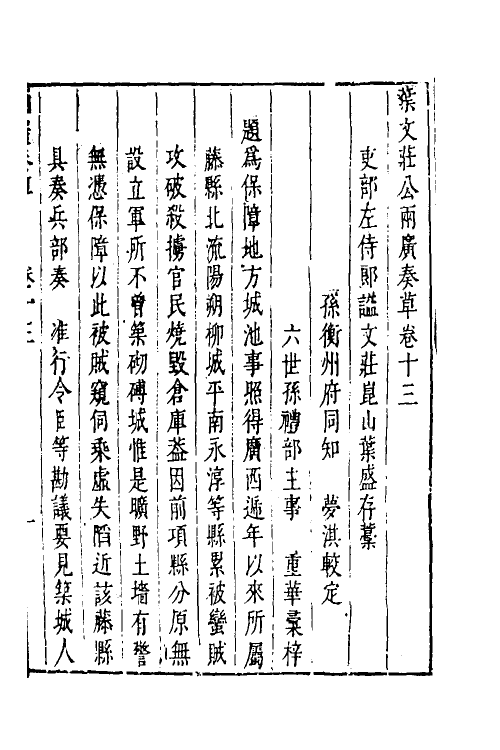 葉文莊公兩廣奏草卷十三
吏部左侍郎謚文莊崑山葉盛存藁
孫衡州府同知　夢淇較定
六世孫禮部主事　重華彙梓
題爲保障地方城池事照得廣西遞年以來所屬
藤縣北流陽朔柳城平南永淳等縣累被蠻賊
攻破殺擄官民燒毀倉庫葢因前項縣分原無
設立軍所不曾築砌磚城惟是曠野土墻有警
無憑保障以此被賊窺伺乘虛失陷近該藤縣
具奏兵部奏　准行令臣等勘議要見築城人
卷十三
一